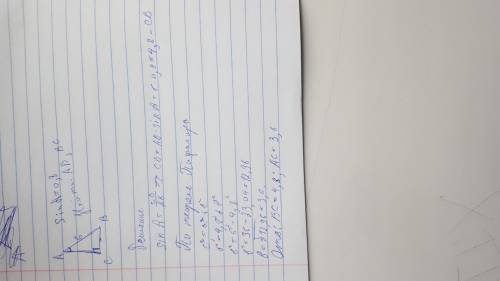 A
6
C B
Sin A = 0,8
Решение
sin A = CB/AB => CB = AB · sin A = 6 · 0,8 = 4,8 - CB
По теореме Пифагора
c² = a² + b²
6² = 4,8² + b²
b² = 6² - 4,8²
b² = 36 - 23,04 = 12,96
b = √12,96 = 3,6
Ответ: BC = 4,8; AC = 3,6